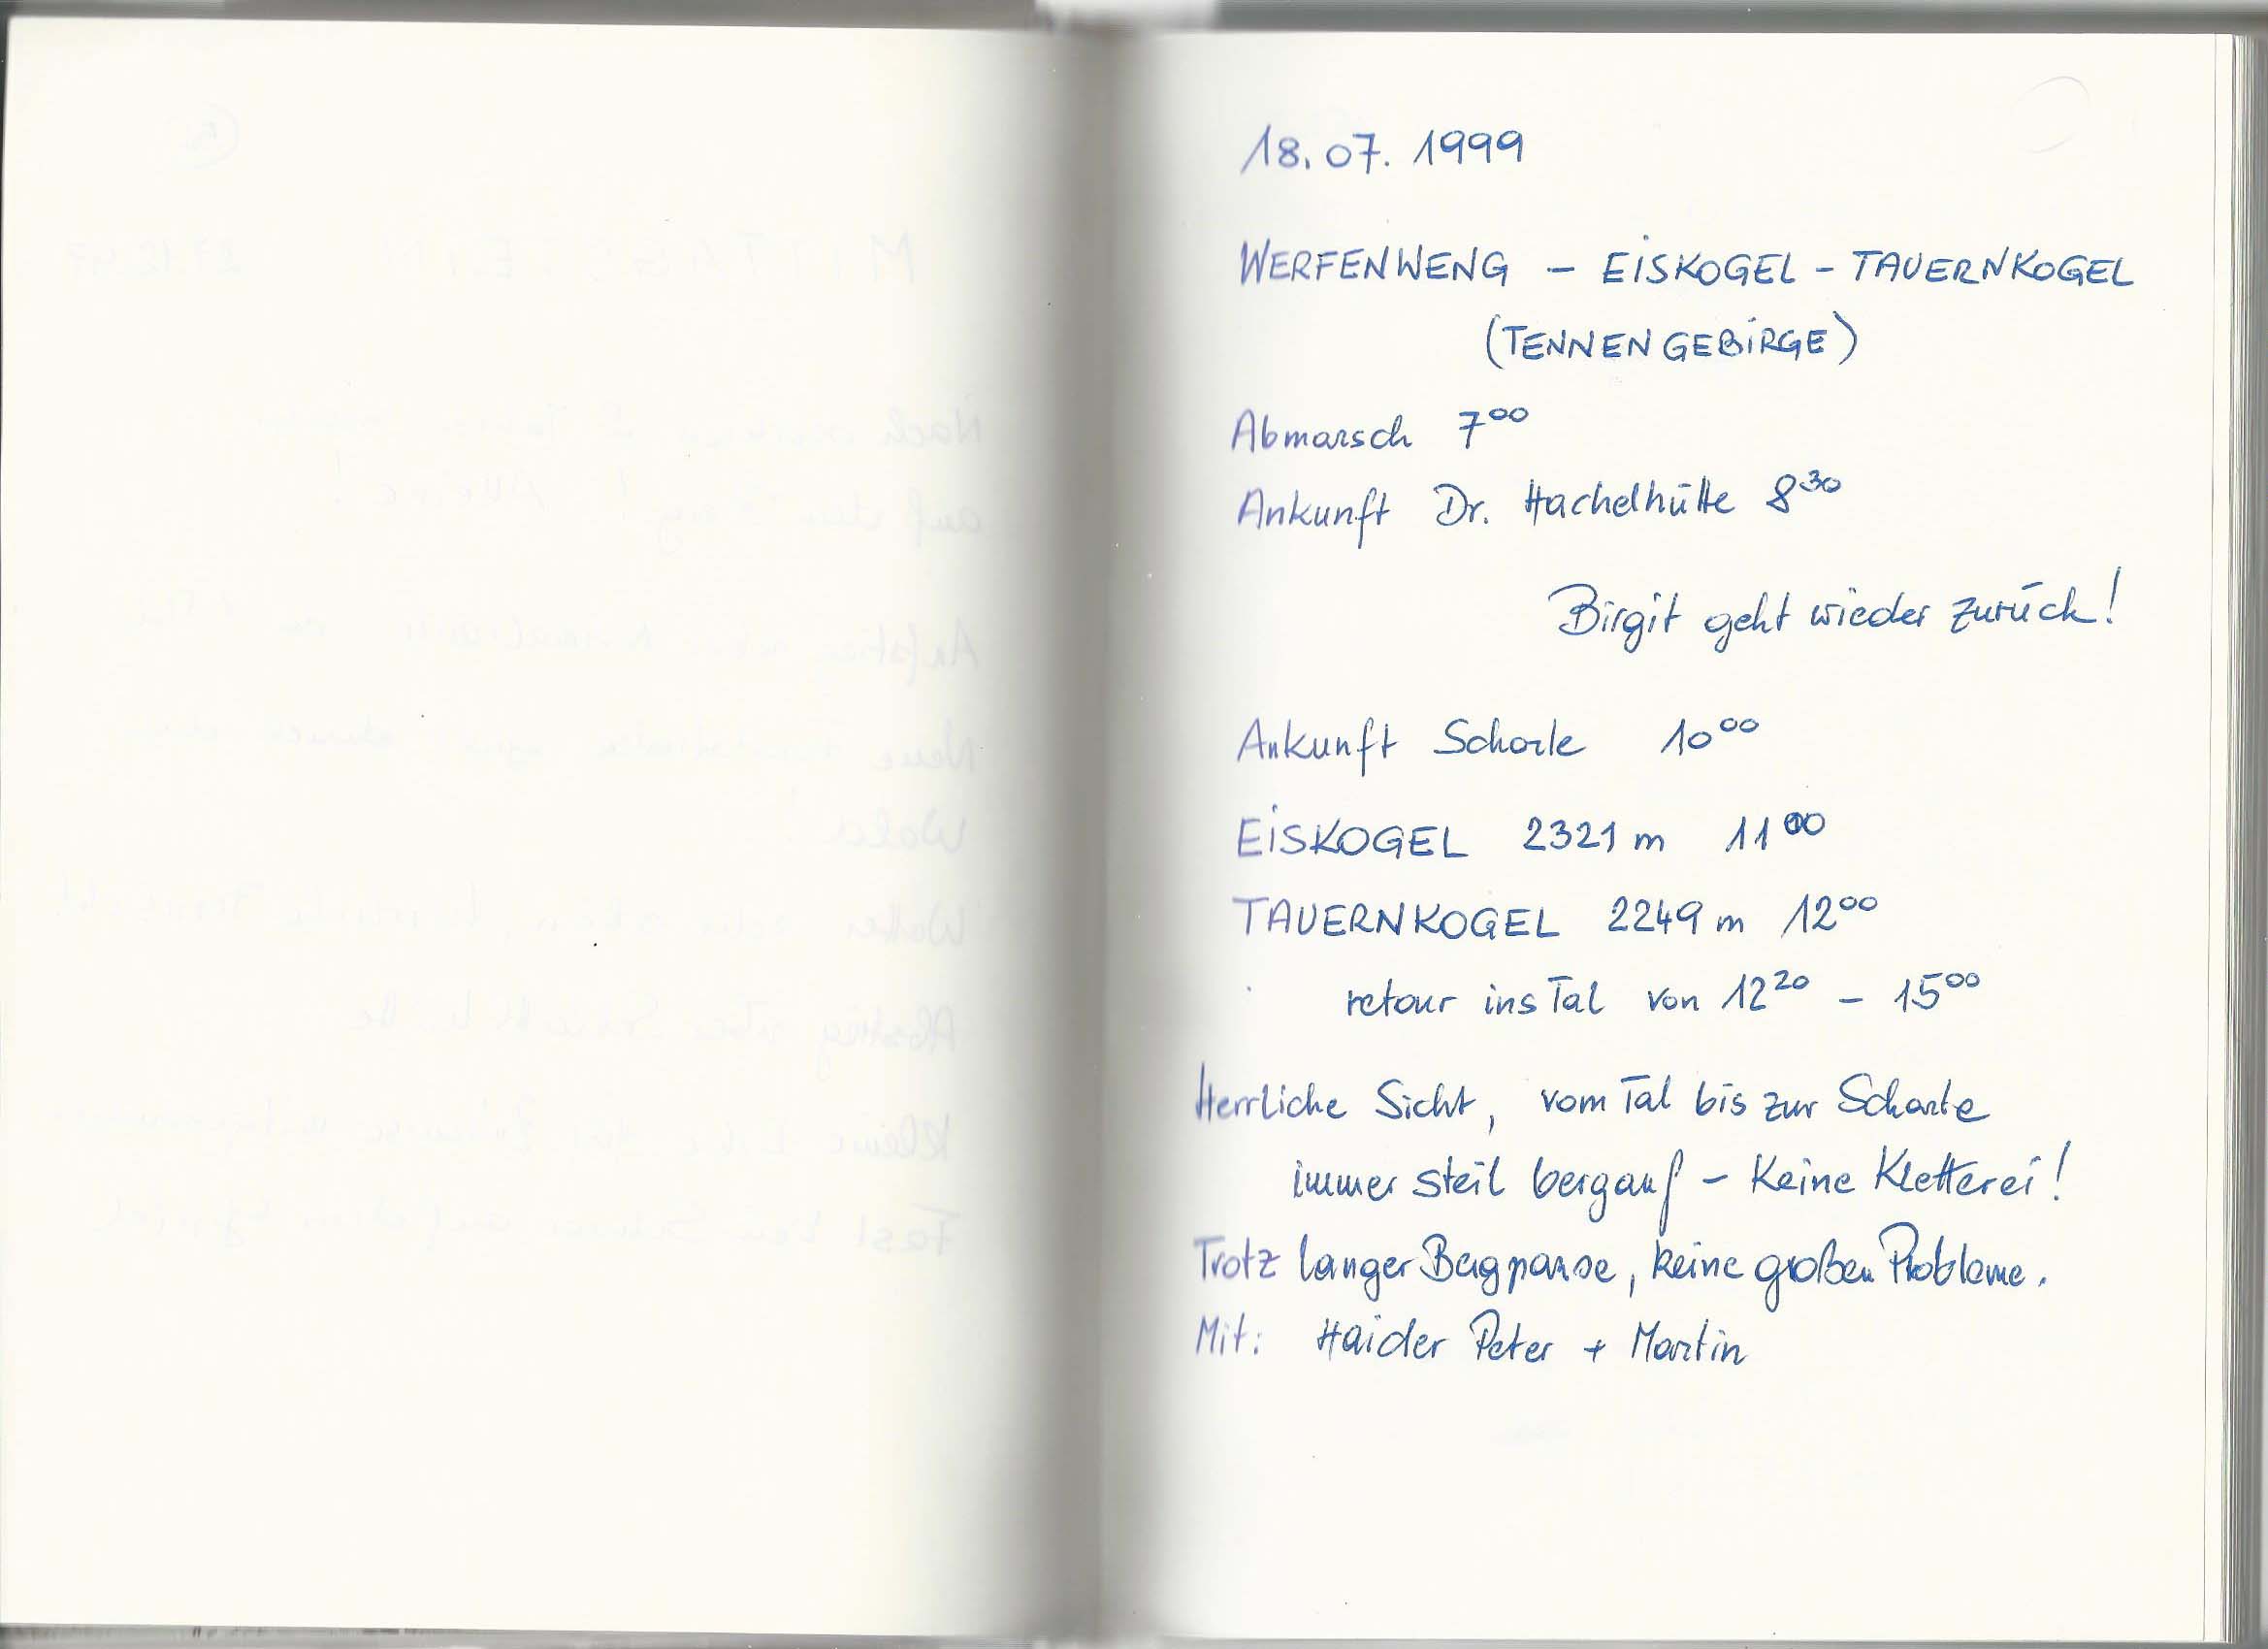 18. 07. 1999
WERFENWENG – EISKOGEL – TAUERNKOGEL
(TENNENGEBIRGE)
Abmarsch 7⁰⁰
Ankunft Dr. Hachelhütte 8³⁰
Birgit geht wieder zurück!
Ankunft Scharte 10⁰⁰
EISKOGEL 2321 m 11⁰⁰
TAUERNKOGEL 2249 m 12⁰⁰
retour ins Tal von 12²⁰ – 15⁰⁰
Herrliche Sicht, vom Tal bis zur Scharte
immer steil bergauf – Keine Kletterei!
Trotz langer Bergpause, keine großen Probleme.
Mit: Haider Peter + Martin